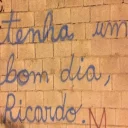 tenha um
bom dia,
Ricardo. M